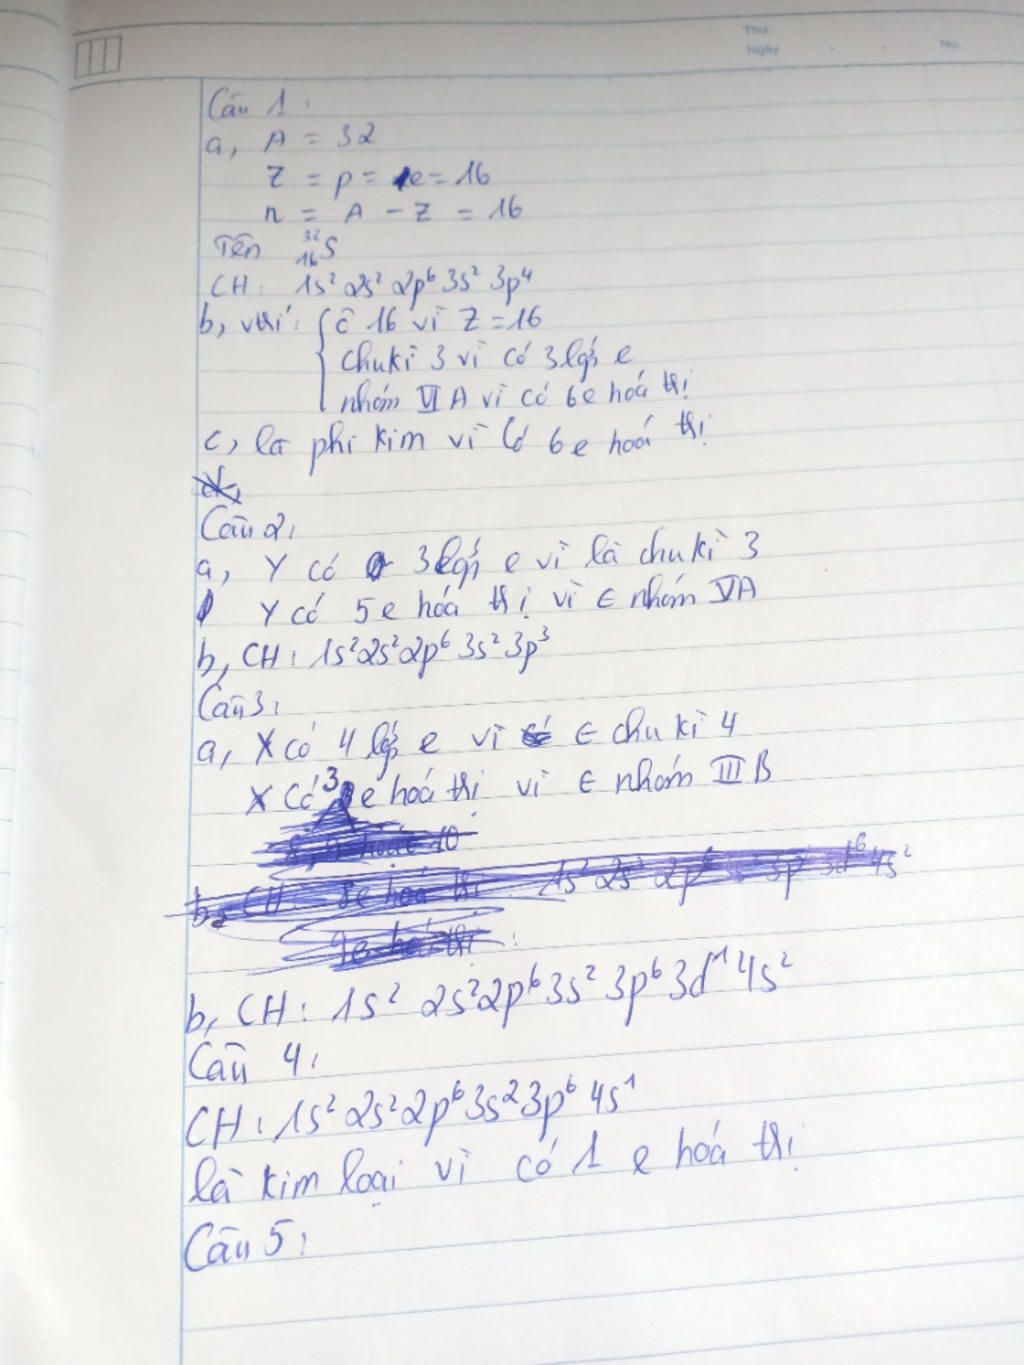 Thứ
Ngày
No.
Câu 1:
a, A = 32
Z = p = e = 16
n = A - Z = 16
Tên ³²₁₆S
CH: 1s² 2s² 2p⁶ 3s² 3p⁴
b, vtrí: { ô 16 vì Z = 16
chu kì 3 vì có 3 lớp e
nhóm VI A vì có 6e hoá trị
c, là phi kim vì có 6e hoá trị
Câu 2:
a, Y có 3 lớp e vì là chu kì 3
Y có 5e hoá trị vì ∈ nhóm VA
b, CH: 1s² 2s² 2p⁶ 3s² 3p³
Câu 3:
a, X có 4 lớp e vì ∈ chu kì 4
X có 3 e hoá trị vì ∈ nhóm III B
b, CH: 1s² 2s² 2p⁶ 3s² 3p⁶ 3d¹ 4s²
Câu 4:
CH: 1s² 2s² 2p⁶ 3s² 3p⁶ 4s¹
là kim loại vì có 1 e hoá trị
Câu 5: